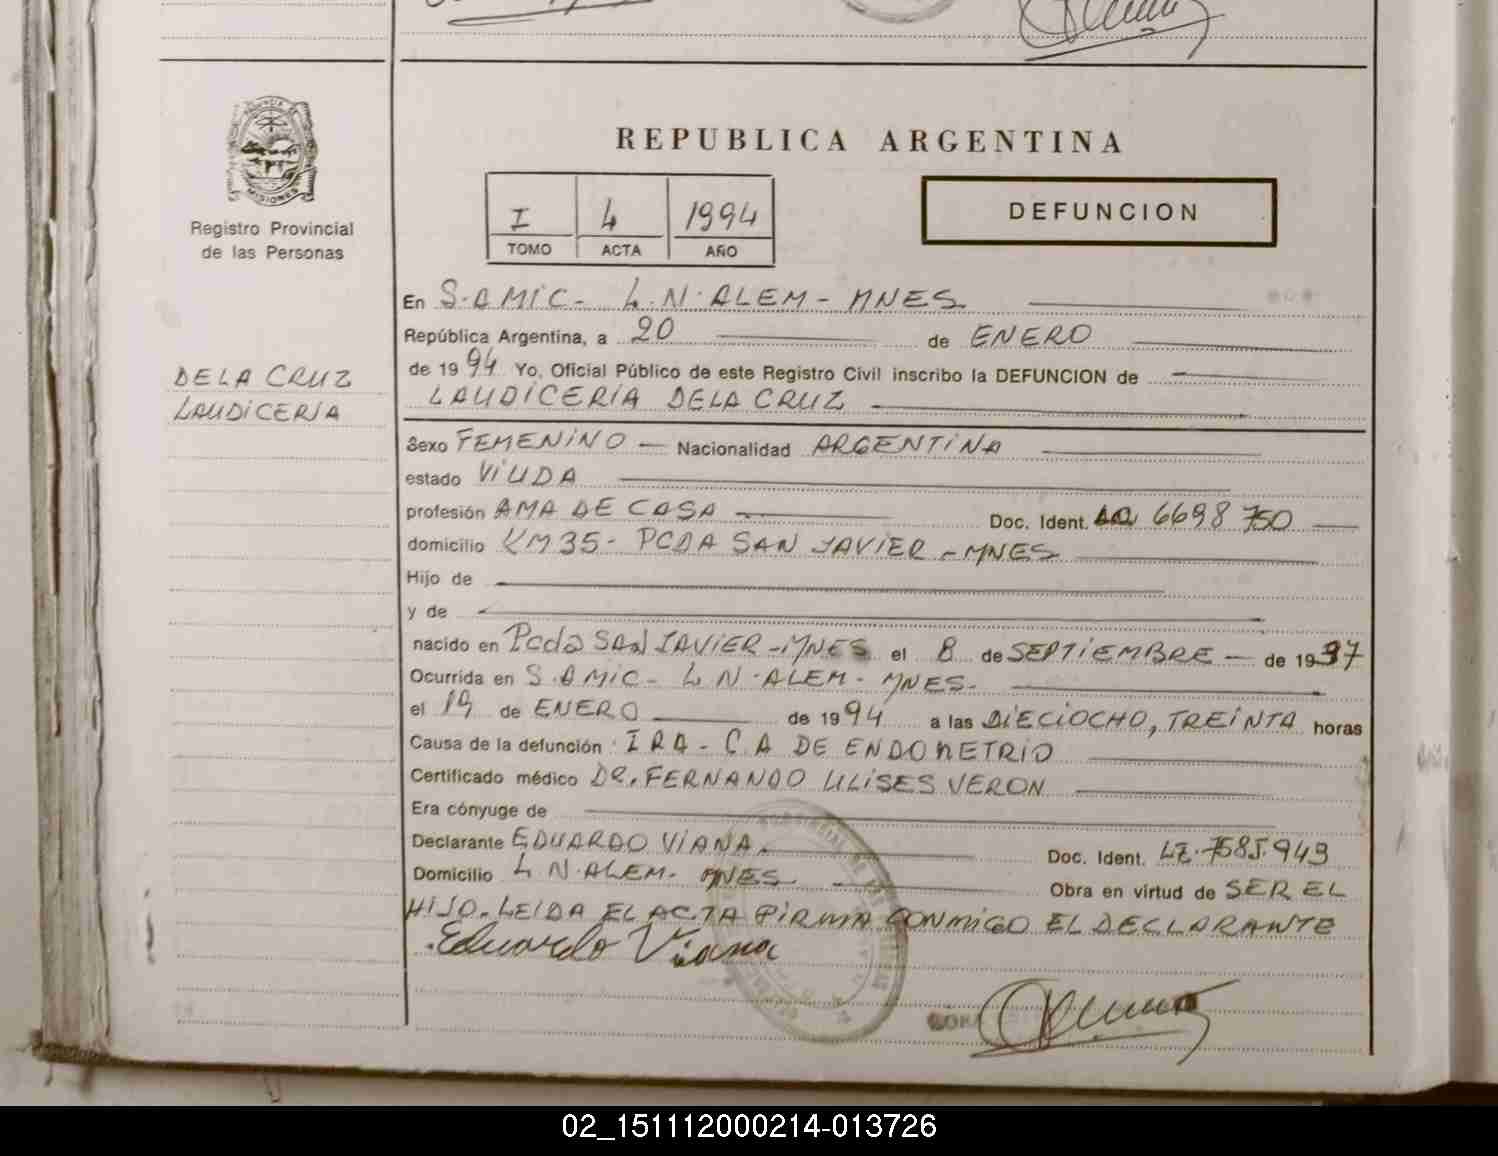 PROVINCIA DE
MISIONES
Registro Provincial
de las Personas
REPUBLICA ARGENTINA
I 4 1994
TOMO ACTA AÑO
DEFUNCION
En S.AMIC- L.N.ALEM-MNES
República Argentina, a 20 de ENERO
de 1994 Yo, Oficial Público de este Registro Civil inscribo la DEFUNCION de
LAUDICERIA DELACRUZ
DELA CRUZ
LAUDICERIA
Sexo FEMENINO Nacionalidad ARGENTINA
estado VIUDA
profesión AMA DE CASA Doc. Ident. 6698750
domicilio KM35-PCDA SAN JAVIER-MNES
Hijo de
y de
nacido en Pcda SAN JAVIER-MNES el 8 de SEPTIEMBRE de 1937
Ocurrida en S.AMIC- L N.ALEM-MNES.
el 19 de ENERO de 1994 a las DIECIOCHO, TREINTA horas
Causa de la defunción: IRA-C.A DE ENDOMETRIO
Certificado médico DR. FERNANDO ULISES VERON
Era cónyuge de
Declarante EDUARDO VIANA. Doc. Ident. LE.7585.949
Domicilio L N.ALEM- MNES Obra en virtud de SER EL
HIJO.LEIDA EL ACTA FIRMA CONMIGO EL DECLARANTE
Eduardo Viana
02_151112000214-013726